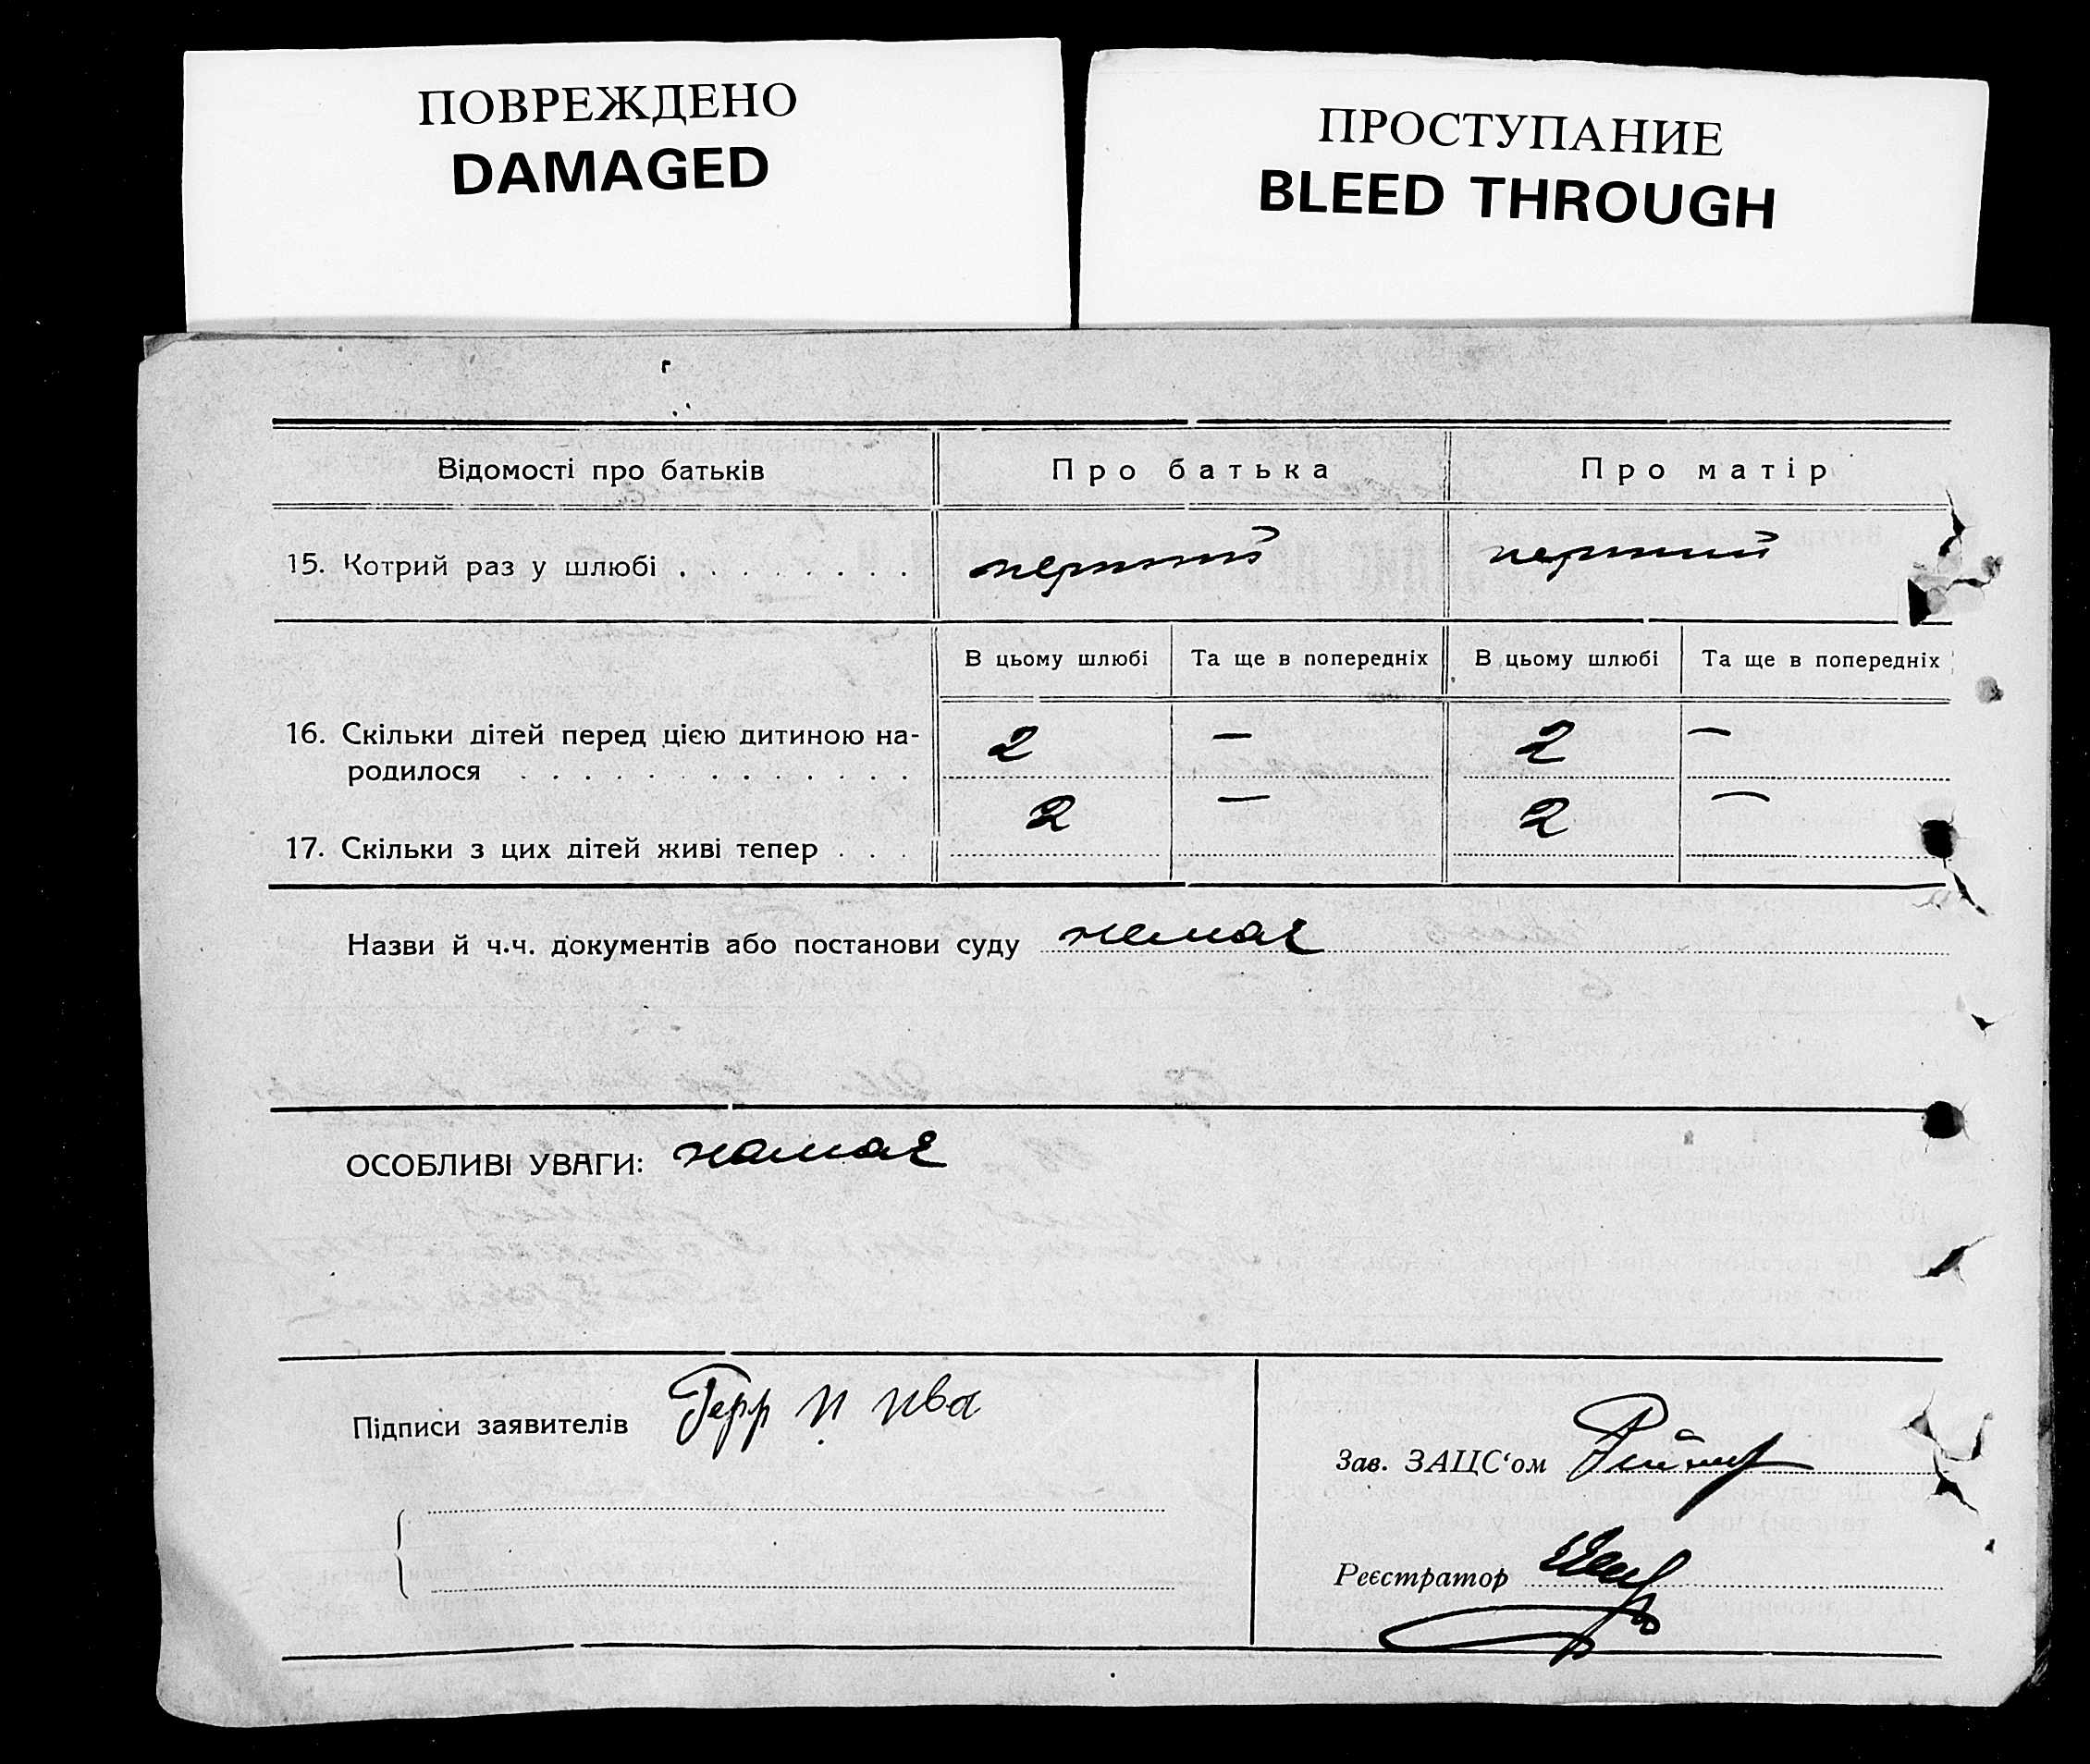 ПОВРЕЖДЕНО
DAMAGED
ПРОСТУПАНИЕ
BLEED THROUGH
Відомості про батьків
Про батька
Про матір
15. Котрий раз у шлюбі . . . . . . . . перший перший
В цьому шлюбі Та ще в попередніх В цьому шлюбі Та ще в попередніх
16. Скільки дітей перед цією дитиною на-
родилося . . . . . . . . . . . . . 2 — 2 —
17. Скільки з цих дітей живі тепер . . . 2 — 2 —
Назви й ч.ч. документів або постанови суду немає
ОСОБЛИВІ УВАГИ: немає
Підписи заявителів Герр
Зав. ЗАЦС‘ом
Реєстратор